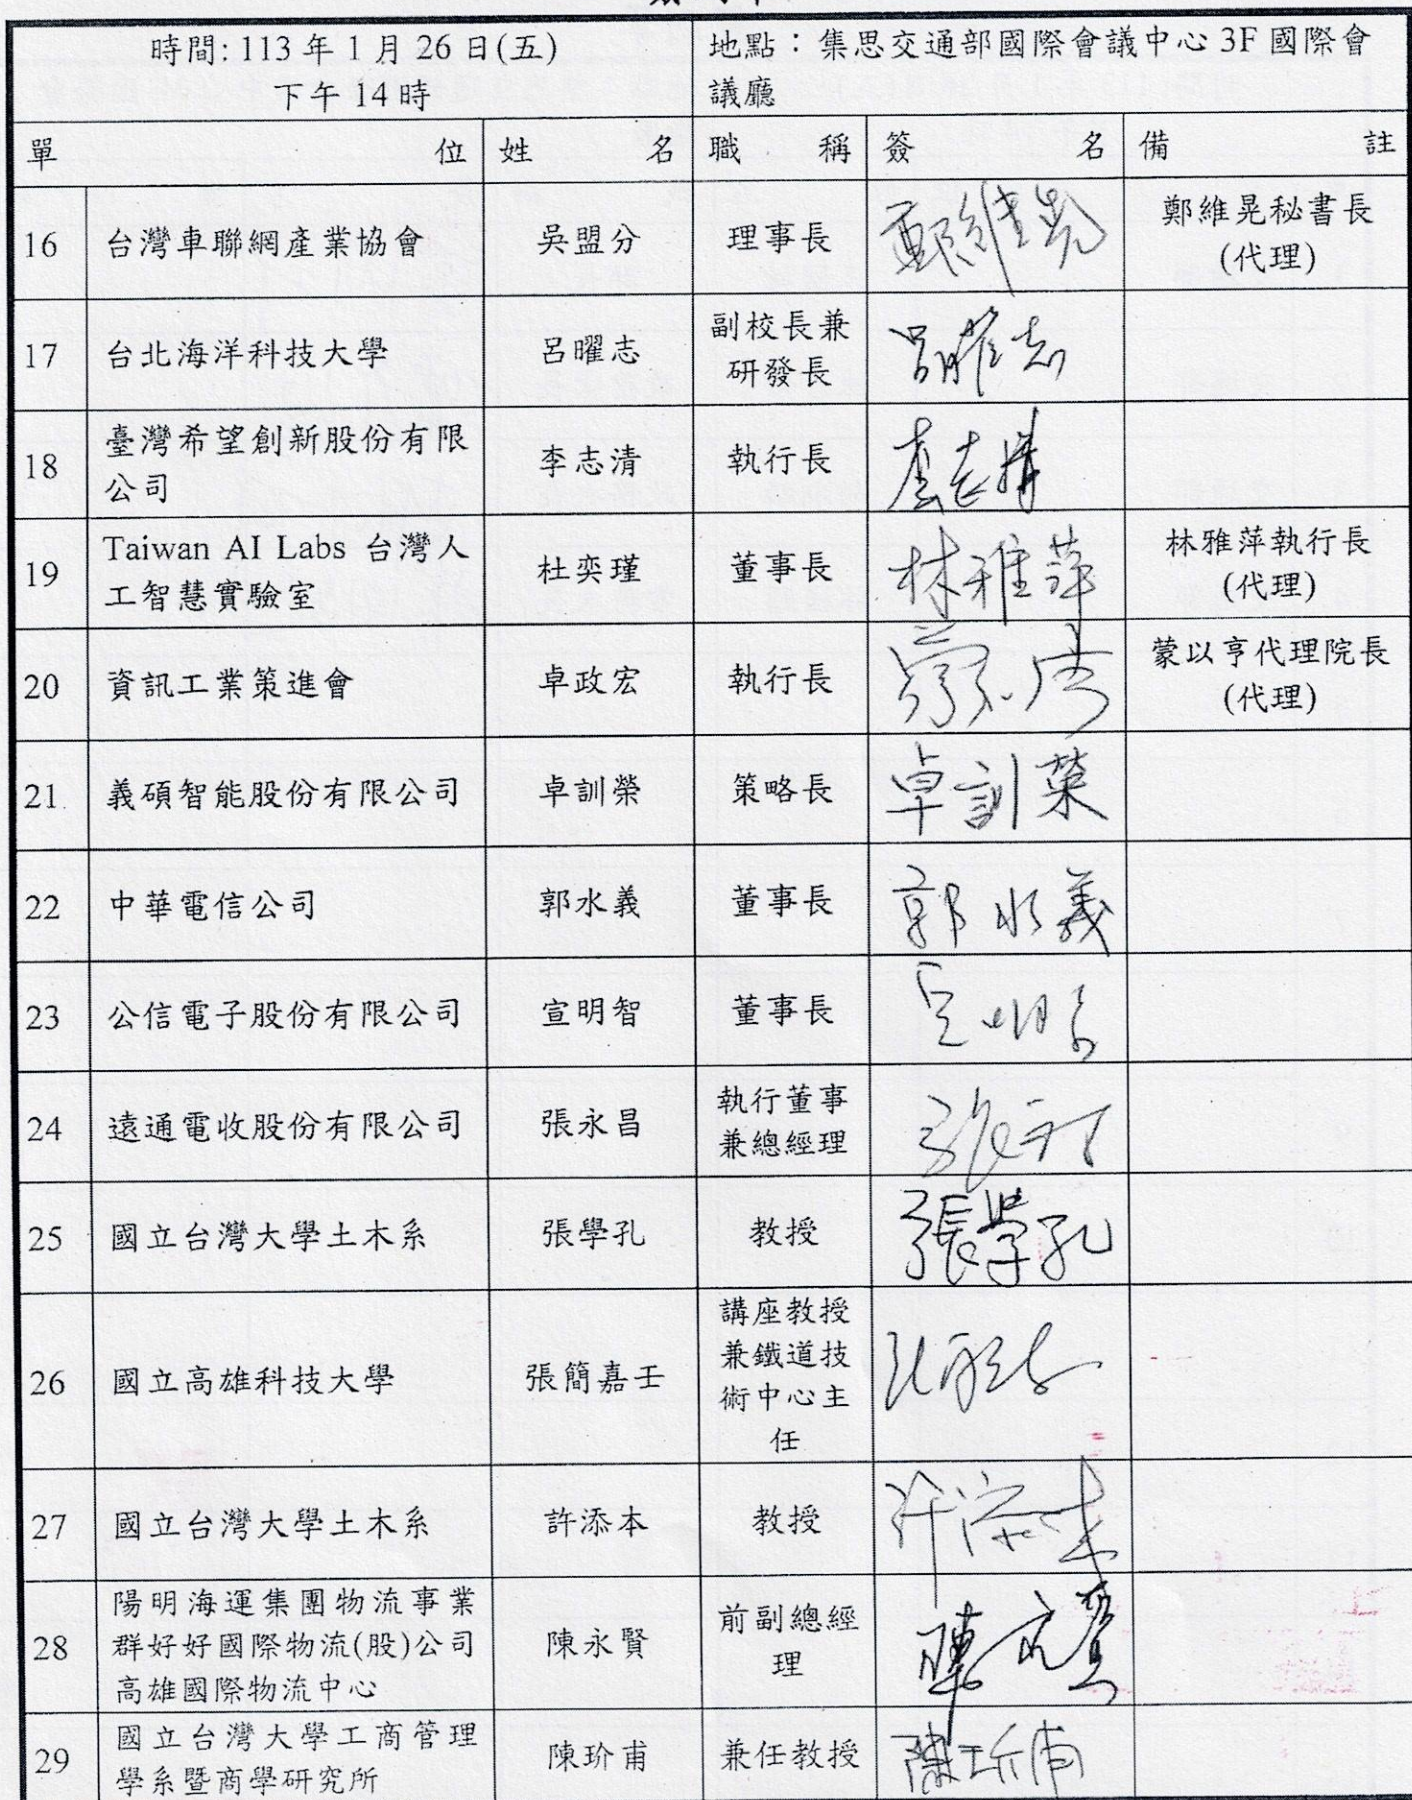 時間:113年1月26日(五)
下午14時
地點：集思交通部國際會
議中心3F國際會
議廳
單位 姓名 職稱 簽名 備註
16 台灣車聯網產業協會 吳盟分 理事長 鄭維晃 鄭維晃秘書長
(代理)
17 台北海洋科技大學 呂曜志 副校長兼
研發長 呂曜志
18 臺灣希望創新股份有限
公司 李志清 執行長 李志清
19 Taiwan AI Labs 台灣人
工智慧實驗室 杜奕瑾 董事長 林雅萍 林雅萍執行長
(代理)
20 資訊工業策進會 卓政宏 執行長 蒙以亨代理院長
(代理)
21 義碩智能股份有限公司 卓訓榮 策略長 卓訓榮
22 中華電信公司 郭水義 董事長 郭水義
23 公信電子股份有限公司 宣明智 董事長 宣明智
24 遠通電收股份有限公司 張永昌 執行董事
兼總經理
25 國立台灣大學土木系 張學孔 教授 張學孔
26 國立高雄科技大學 張簡嘉壬 講座教授
兼鐵道技
術中心主
任
27 國立台灣大學土木系 許添本 教授 許添本
28 陽明海運集團物流事業
群好好國際物流(股)公司
高雄國際物流中心 陳永賢 前副總經
理 陳永賢
29 國立台灣大學工商管理
學系暨商學研究所 陳玠甫 兼任教授 陳玠甫